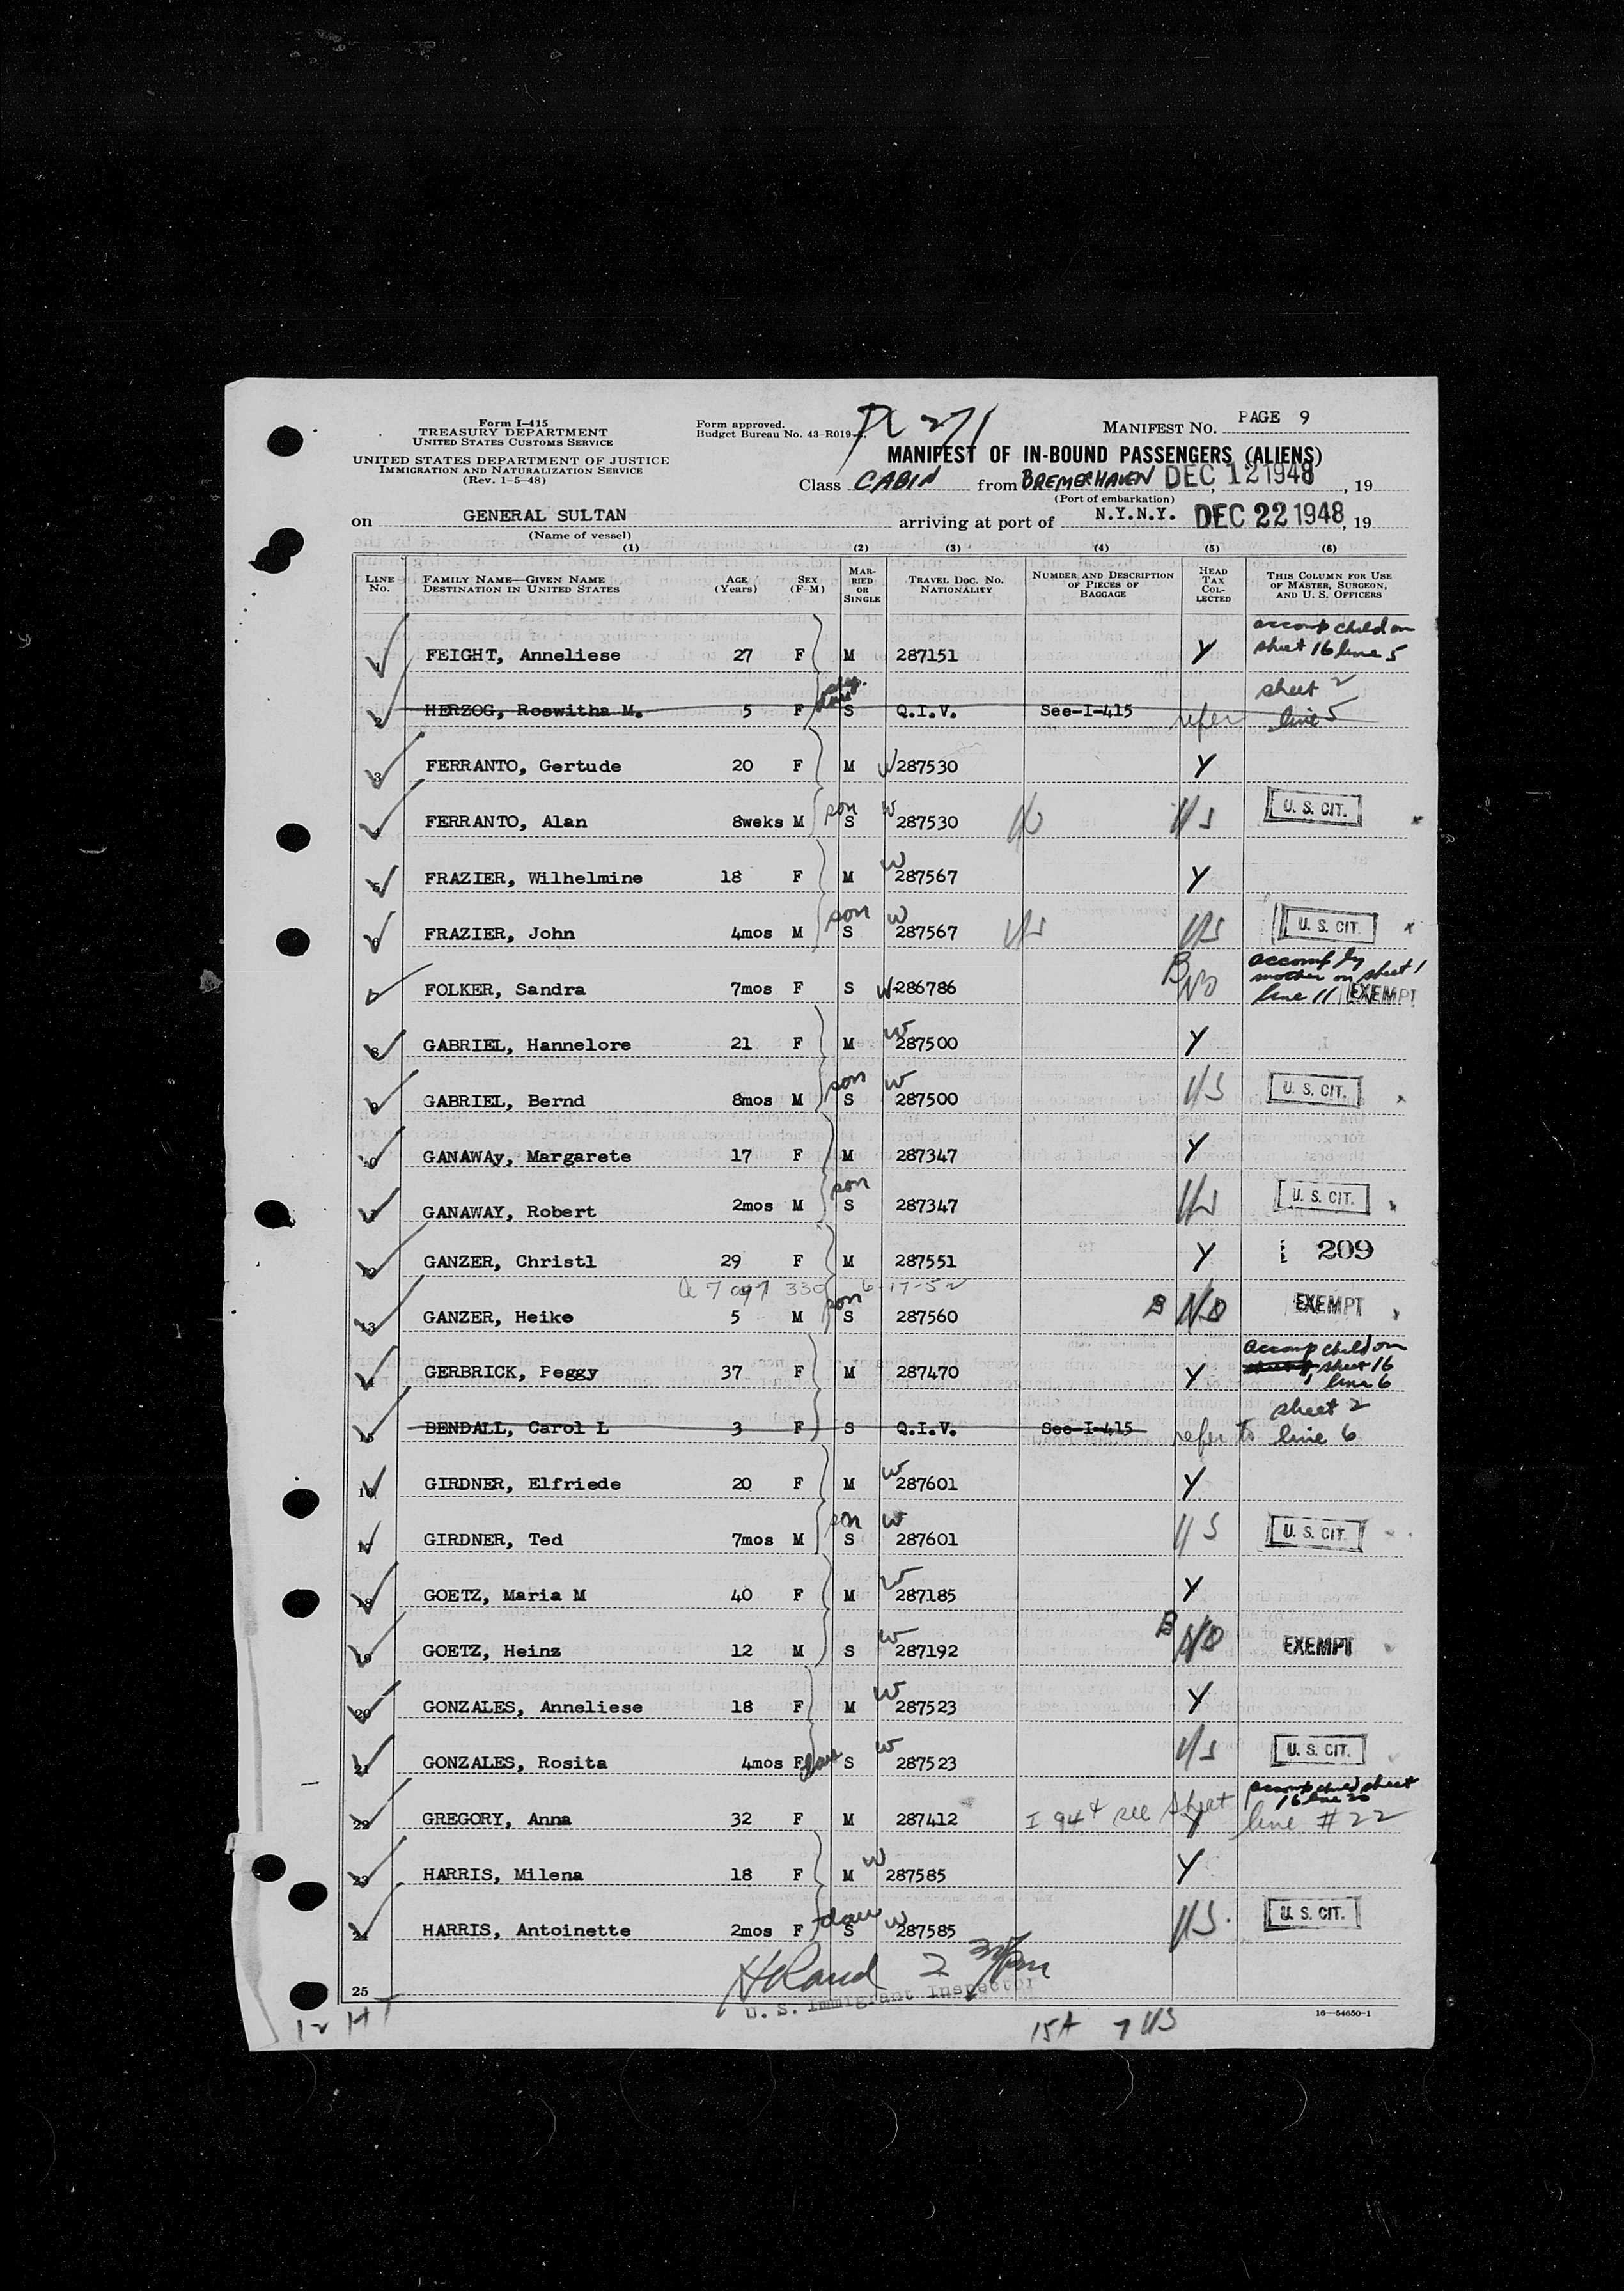 Form I-415
TREASURY DEPARTMENT
UNITED STATES CUSTOMS SERVICE
UNITED STATES DEPARTMENT OF JUSTICE
IMMIGRATION AND NATURALIZATION SERVICE
(Rev. 1-5-48)
Form approved.
Budget Bureau No. 43-R019
271
MANIFEST NO. PAGE 9
MANIFEST OF IN-BOUND PASSENGERS (ALIENS)
Class CABIN from BREMERHAVEN DEC 12 1948, 19
(Port of embarkation)
on GENERAL SULTAN arriving at port of N.Y.N.Y. DEC 22 1948, 19
(Name of vessel)
(1) (2) (3) (4) (5) (6)
LINE NO. FAMILY NAME—GIVEN NAME DESTINATION IN UNITED STATES AGE (Years) SEX (F-M) MARRIED OR SINGLE TRAVEL DOC. NO. NATIONALITY NUMBER AND DESCRIPTION OF PIECES OF BAGGAGE HEAD TAX COLLECTED THIS COLUMN FOR USE OF MASTER, SURGEON, AND U. S. OFFICERS
1 FEIGHT, Anneliese 27 F M 287151 Y accomp child on sheet 16 line 5
2 HERZOG, Roswitha M. 5 F step dau S Q.I.V. See-I-415 refer sheet 2 line 5
3 FERRANTO, Gertude 20 F M W 287530 Y
4 FERRANTO, Alan 8weks M son S W 287530 US U. S. CIT.
5 FRAZIER, Wilhelmine 18 F M W 287567 Y
6 FRAZIER, John 4mos M son S W 287567 US US U. S. CIT.
7 FOLKER, Sandra 7mos F S W 286786 B NO accomp by mother on sheet 1 line 11 EXEMPT
8 GABRIEL, Hannelore 21 F M W 287500 Y
9 GABRIEL, Bernd 8mos M son S W 287500 US U. S. CIT.
10 GANAWAy, Margarete 17 F M 287347 Y
11 GANAWAY, Robert 2mos M son S 287347 US U. S. CIT.
12 GANZER, Christl 29 F M 287551 Y 209
330 6-17-52
13 GANZER, Heike 5 M son S 287560 B NO EXEMPT
14 GERBRICK, Peggy 37 F M 287470 Y accomp child on sheet 16 line 6
15 BENDALL, Carol L 3 F S Q.I.V. See-I-415 refer to sheet 2 line 6
16 GIRDNER, Elfriede 20 F M W 287601 Y
17 GIRDNER, Ted 7mos M son S W 287601 US U. S. CIT.
18 GOETZ, Maria M 40 F M W 287185 Y
19 GOETZ, Heinz 12 M S W 287192 B NO EXEMPT
20 GONZALES, Anneliese 18 F M W 287523 Y
21 GONZALES, Rosita 4mos F dau S W 287523 US U. S. CIT.
22 GREGORY, Anna 32 F M 287412 I 94 see sheet Y accomp child sheet 16 line 20 line # 22
23 HARRIS, Milena 18 F M W 287585 Y
24 HARRIS, Antoinette 2mos F dau S W 287585 US. U. S. CIT.
25
H Rand 2 30 pm
U. S. Immigrant Inspector
16—54650-1
12 HT
15A 7 US